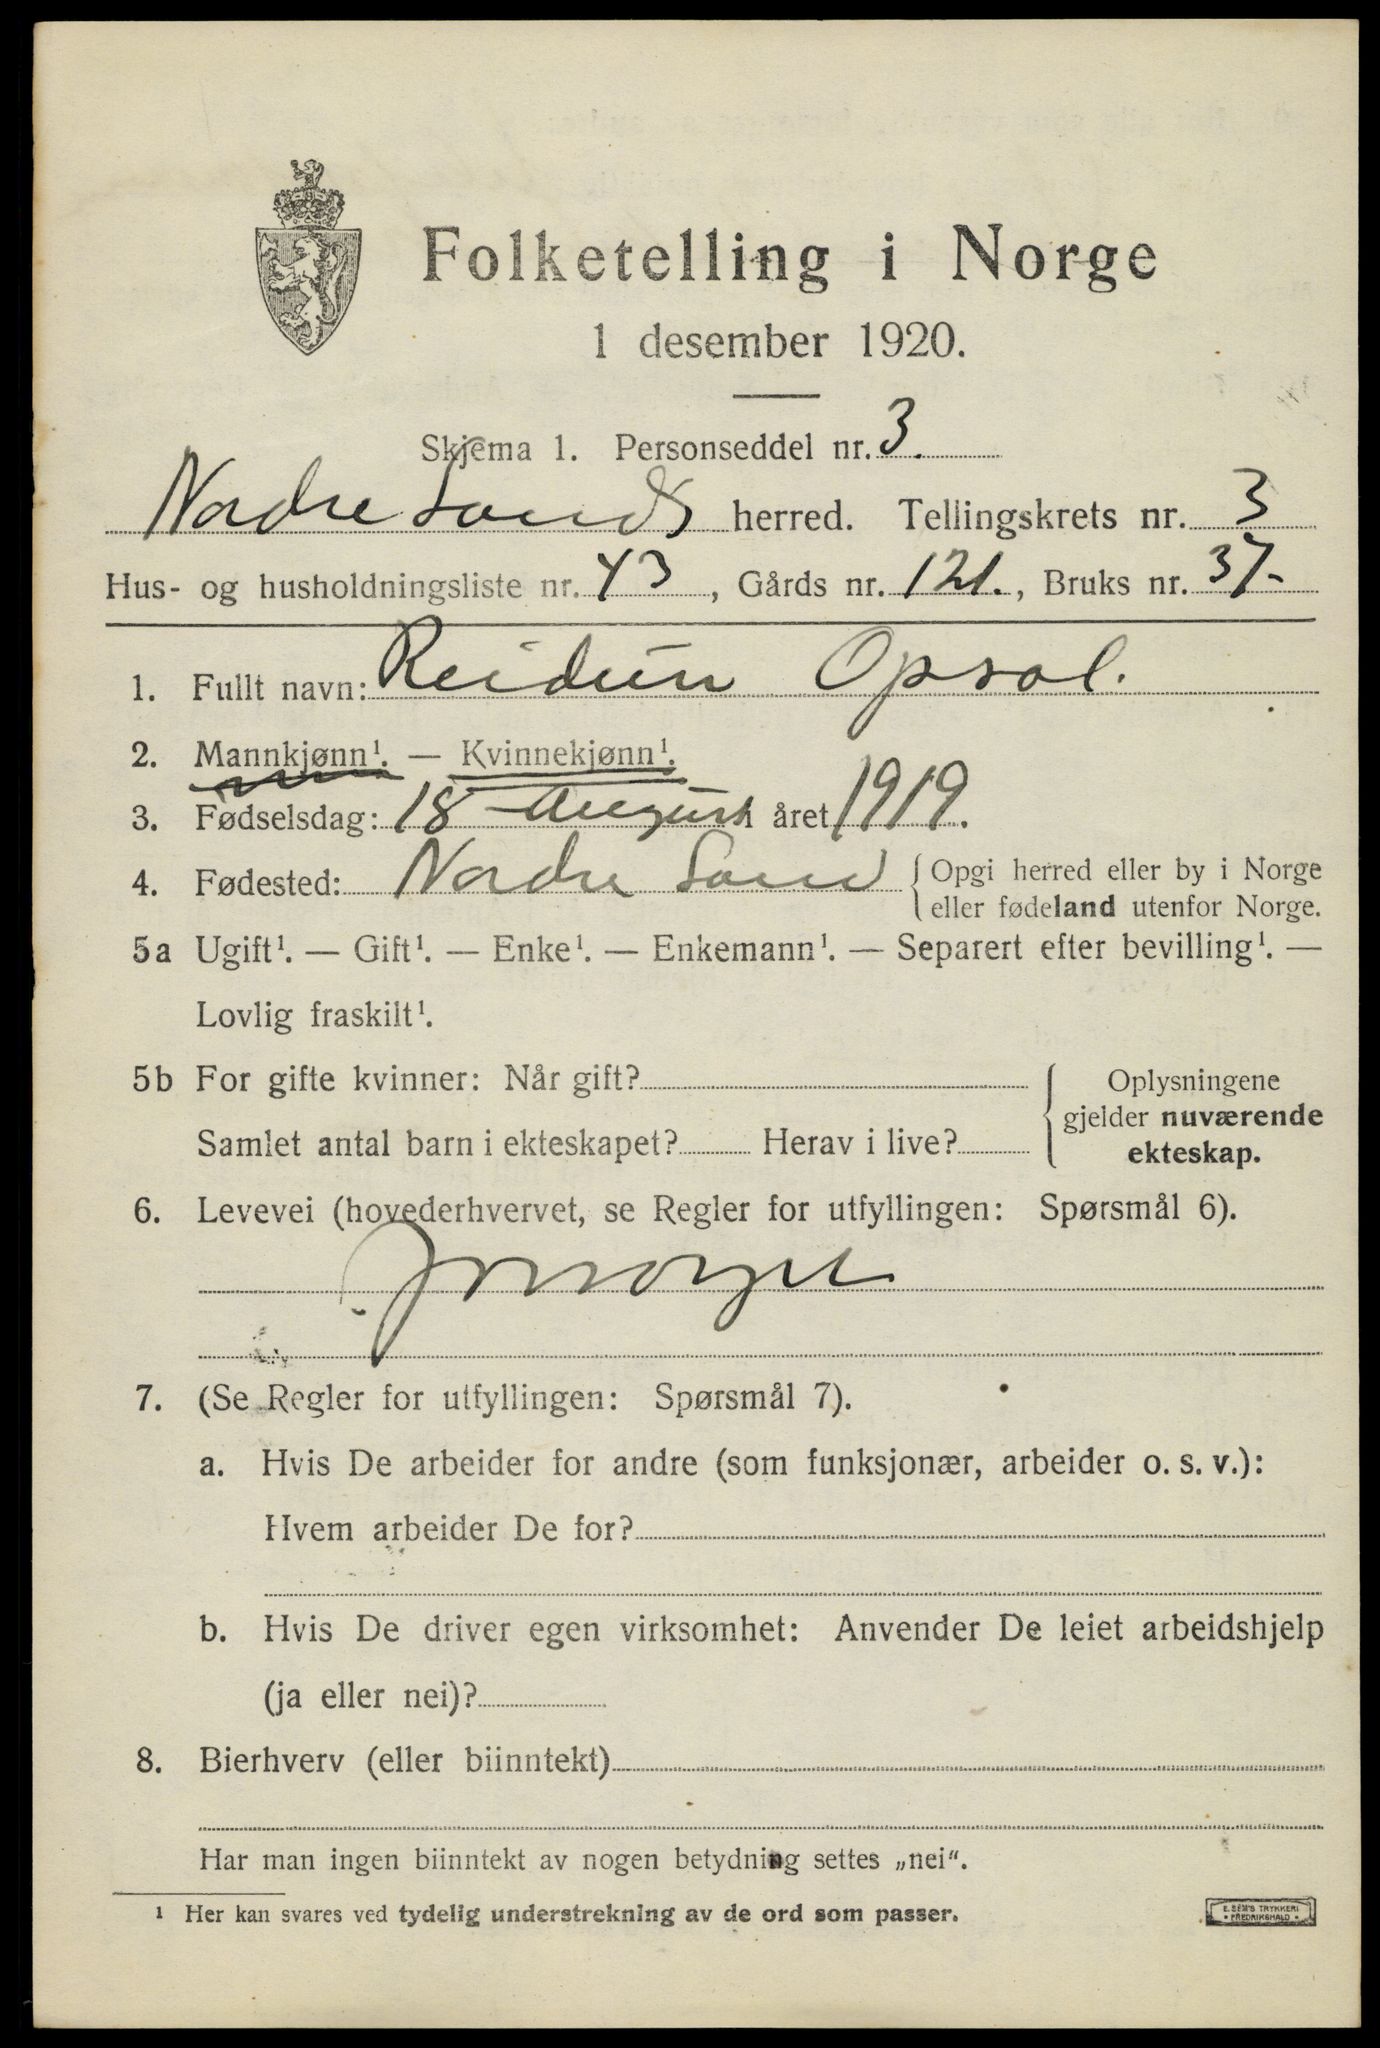 Folketelling i Norge
1 desember 1920.
Skjema 1. Personseddel nr. 3.
Nordre Lands herred. Tellingskrets nr. 3
Hus- og husholdningsliste nr. 43, Gårds nr. 121., Bruks nr. 37-
1. Fullt navn: Reidun Opsal.
2. Mannkjønn¹. — Kvinnekjønn¹.
3. Fødselsdag: 18 August året 1919.
4. Fødested: Nordre Land { Opgi herred eller by i Norge
eller fødeland utenfor Norge.
5a Ugift¹. — Gift¹. — Enke¹. — Enkemann¹. — Separert efter bevilling¹. —
Lovlig fraskilt¹.
5b For gifte kvinner: Når gift?
Samlet antal barn i ekteskapet? Herav i live?
{ Oplysningene
gjelder nuværende
ekteskap.
6. Levevei (hovederhvervet, se Regler for utfyllingen: Spørsmål 6).
Forsørget
7. (Se Regler for utfyllingen: Spørsmål 7).
a. Hvis De arbeider for andre (som funksjonær, arbeider o. s. v.):
Hvem arbeider De for?
b. Hvis De driver egen virksomhet: Anvender De leiet arbeidshjelp
(ja eller nei)?
8. Bierhverv (eller biinntekt)
Har man ingen biinntekt av nogen betydning settes „nei“.
¹ Her kan svares ved tydelig understrekning av de ord som passer.
E. SEM'S TRYKKERI
• FREDRIKSHALD •